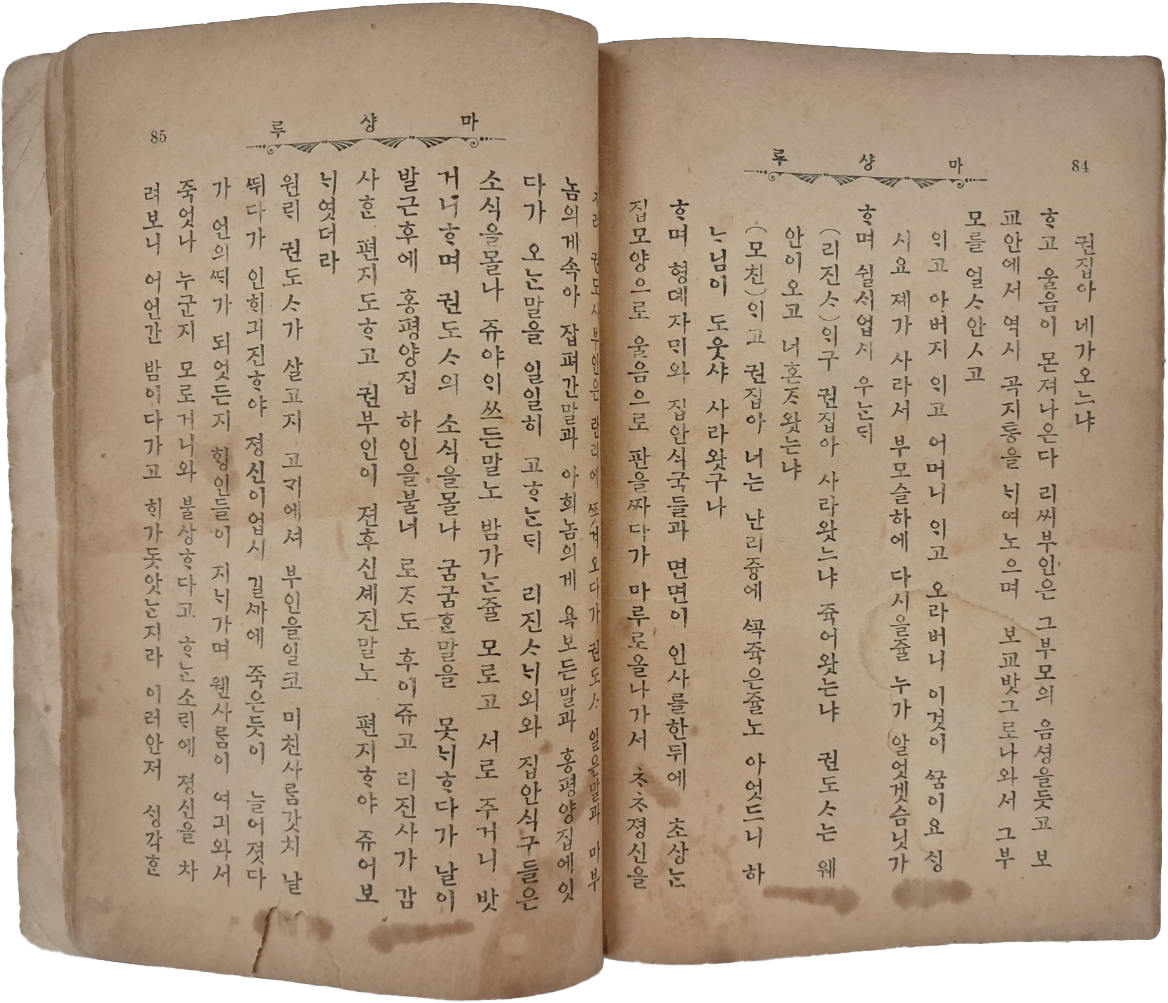 84
마샹루
권집아 네가오느냐
ᄒᆞ고 울음이 몬져나온다 리씨부인은 그부모의 음셩을듯고 보
교안에서 역시 곡지통을 ᄂᆡ여 노으며 보교밧그로나와서 그부
모를 얼ᄉᆞ안ㅅ고
ᄋᆡ고 아버지 ᄋᆡ고 어머니 ᄋᆡ고 오라버니 이것이 ᄭᅮᆷ이요 ᄉᆡᆼ
시요 제가 사라서 부모슬하에 다시올쥴 누가 알엇겟슴닛가
ᄒᆞ며 쉴ᄉᆡ업시 우ᄂᆞᆫᄃᆡ
(리진ᄉᆞ)ᄋᆡ구 권집아 사라왓느냐 쥭어왓는냐 권도ᄉᆞ는 웨
안이오고 너혼ᄌᆞ왓는냐
(모친)ᄋᆡ고 권집아 너는 난리즁에 ᄭᅩᆨ쥭은쥴노 아엇드니 하
ᄂᆞ님이 도읏샤 사라왓구나
ᄒᆞ며 형뎨자ᄆᆡ와 집안식국들과 면면이 인사를한뒤에 초상ᄂᆞᆫ
집모양으로 울음으로 판을ᄶᅡ다가 마루로올나가서 ᄎᆞᄎᆞ졍신을
85
마샹루
권도사부인은 란리에 ᄶᅩᆺ겨오다가 권도ᄉᆞ 일은말과 마부
놈의게속아 잡펴간말과 아희놈의게 욕보든말과 홍평양집에잇
다가 오ᄂᆞᆫ말을 일일히 고ᄒᆞᄂᆞᆫᄃᆡ 리진ᄉᆞᄂᆡ외와 집안식구들은
소식을몰나 쥬야ᄋᆡ쓰든말노 밤가ᄂᆞᆫ쥴 모로고 서로 주거니 밧
거니ᄒᆞ며 권도ᄉᆞ의 소식을몰나 굼굼ᄒᆞᆫ말을 못ᄂᆡᄒᆞ다가 날이
발근후에 홍평양집 하인을불너 로ᄌᆞ도 후이쥬고 리진사가 감
사ᄒᆞᆫ 편지도ᄒᆞ고 권부인이 젼후신셰진말노 편지ᄒᆞ야 쥬어보
ᄂᆡ엿더라
원ᄅᆡ 권도ᄉᆞ가 살고지 고ᄀᆡ에셔 부인을일코 미친사ᄅᆞᆷ갓치 날
ᄯᅱ다가 인ᄒᆡ긔진ᄒᆞ야 졍신이업시 길ᄭᅡ에 죽은듯이 늘어졋다
가 언의ᄯᅢ가 되엇든지 ᄒᆡᆼ인들이 지ᄂᆡ가며 웬사ᄅᆞᆷ이 여긔와서
죽엇나 누군지 모로거니와 불상ᄒᆞ다고 ᄒᆞᄂᆞᆫ소ᄅᆡ에 졍신을 차
려보니 어언간 밤이다가고 ᄒᆡ가돗앗ᄂᆞᆫ지라 이러안저 ᄉᆡᆼ각ᄒᆞᆫ